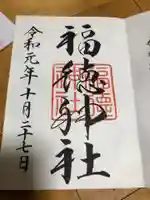 福徳神社
令和元年十月二十七日